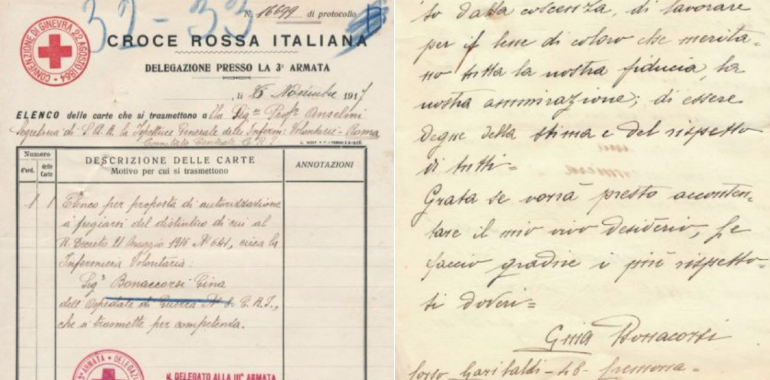 N. 16699 di protocollo
32-33
CONVENZIONE DI GINEVRA 22 AGOSTO 1864
CROCE ROSSA ITALIANA
DELEGAZIONE PRESSO LA 3ª ARMATA
li 6 Novembre 1917
ELENCO delle carte che si trasmettono a lla Sig.na Prof.ª Anselmi
Segretaria di S.A.R. la Ispettrice Generale delle Inferm. Volontarie - Roma
Comitato Centrale C.R.I.
Numero
d'ord.
delle Carte
DESCRIZIONE DELLE CARTE
Motivo per cui si trasmettono
ANNOTAZIONI
1 1 Elenco per proposta di autorizzazione
a fregiarsi del distintivo di cui al
R. Decreto 21 Maggio 1916 N° 641, circa la
Infermiera Volontaria:
Sigª Bonaccorsi Gina
dell'Ospedale di Guerra N° 1. C.R.I.,
che si trasmette per competenza.
3ª ARMATA
IL DELEGATO ALLA IIIª ARMATA
so dalla coscenza, di lavorare
per il bene di coloro che merita-
no tutta la nostra fiducia, la
nostra ammirazione; di essere
degne della stima e del rispetto
di tutti=
Grata se vorrà presto acconten-
tare il mio vivo desiderio, Le
faccio gradire i più rispetto-
si doveri=
Gina Bonacorsi
Corso Garibaldi - 48 - Cremona -